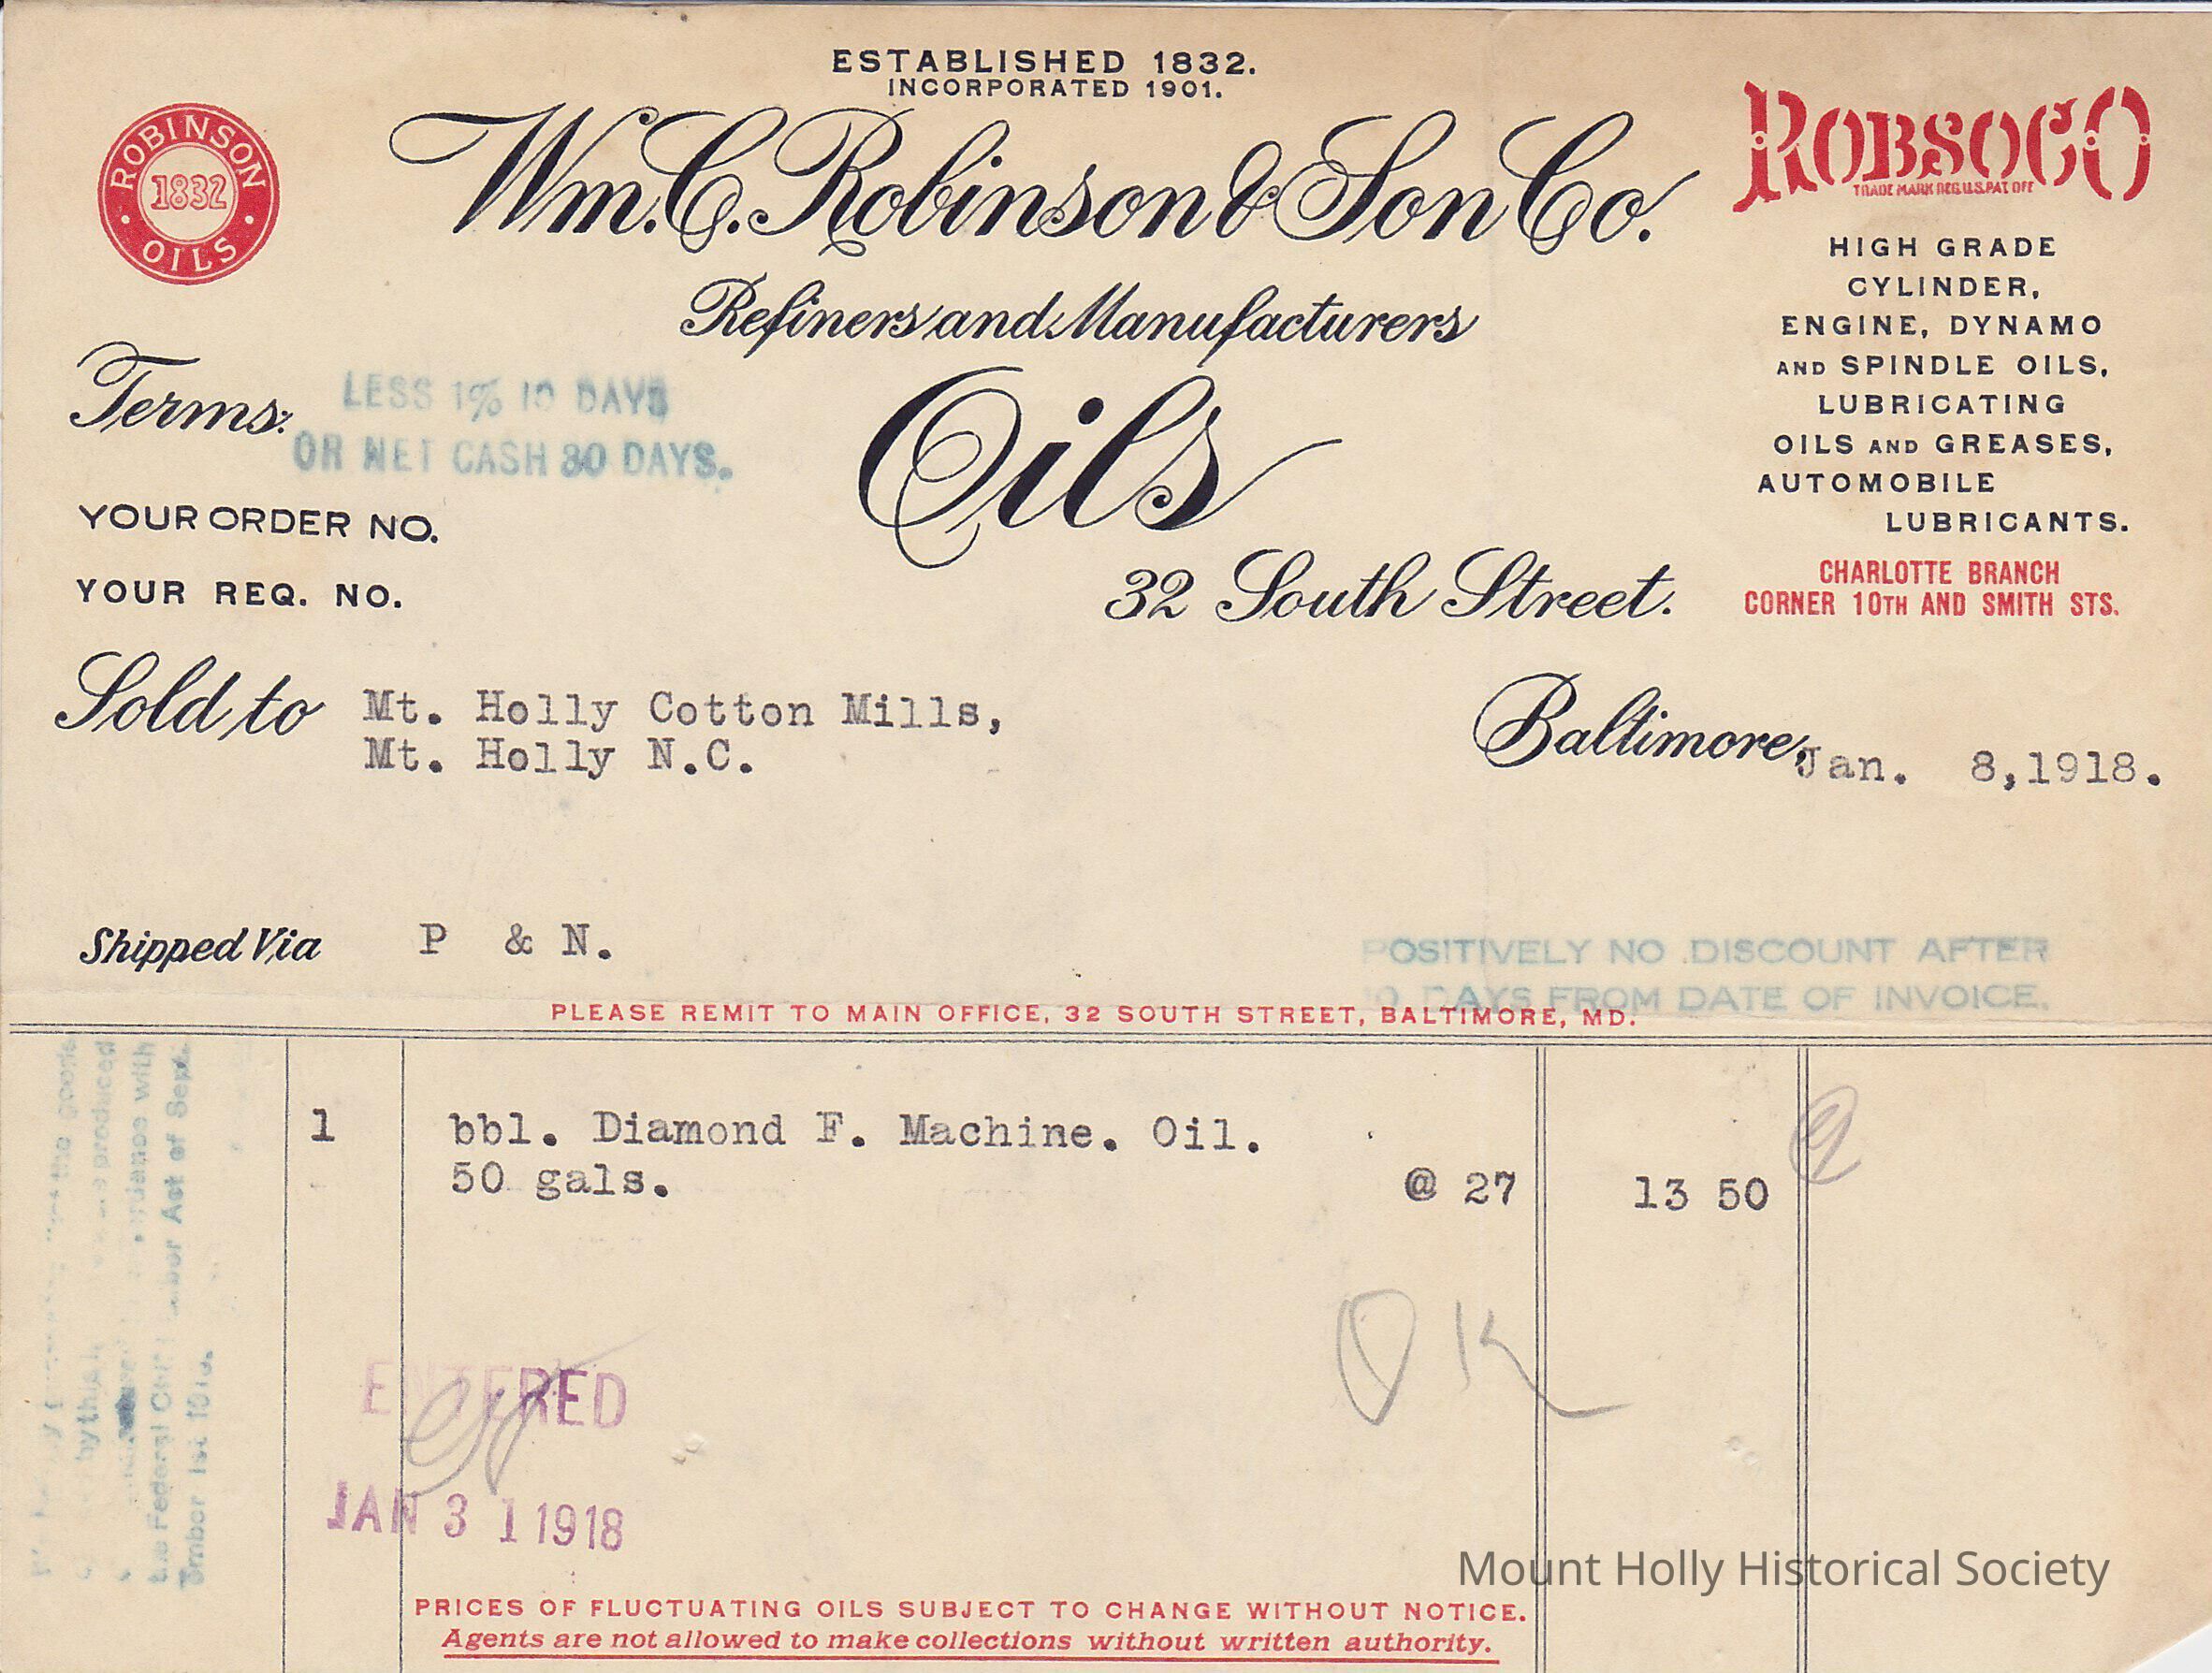 ESTABLISHED 1832.
INCORPORATED 1901.
ROBINSON
1832
OILS
Wm. C. Robinson & Son Co.
ROBSOCO
TRADE MARK REG. U.S. PAT. OFF.
Refiners and Manufacturers
Oils
32 South Street.
HIGH GRADE
CYLINDER,
ENGINE, DYNAMO
AND SPINDLE OILS,
LUBRICATING
OILS AND GREASES,
AUTOMOBILE
LUBRICANTS.
CHARLOTTE BRANCH
CORNER 10TH AND SMITH STS.
Terms: LESS 1% 10 DAYS
OR NET CASH 30 DAYS.
YOUR ORDER NO.
YOUR REQ. NO.
Sold to Mt. Holly Cotton Mills,
Mt. Holly N.C.
Baltimore, Jan. 8,1918.
Shipped Via P & N.
POSITIVELY NO DISCOUNT AFTER
10 DAYS FROM DATE OF INVOICE.
PLEASE REMIT TO MAIN OFFICE, 32 SOUTH STREET, BALTIMORE, MD.
the goods
produced
with
the Federal Labor Act of Sept.
1 bbl. Diamond F. Machine. Oil.
50 gals. @ 27 13 50
OK
ENTERED
JAN 31 1918
Mount Holly Historical Society
PRICES OF FLUCTUATING OILS SUBJECT TO CHANGE WITHOUT NOTICE.
Agents are not allowed to make collections without written authority.